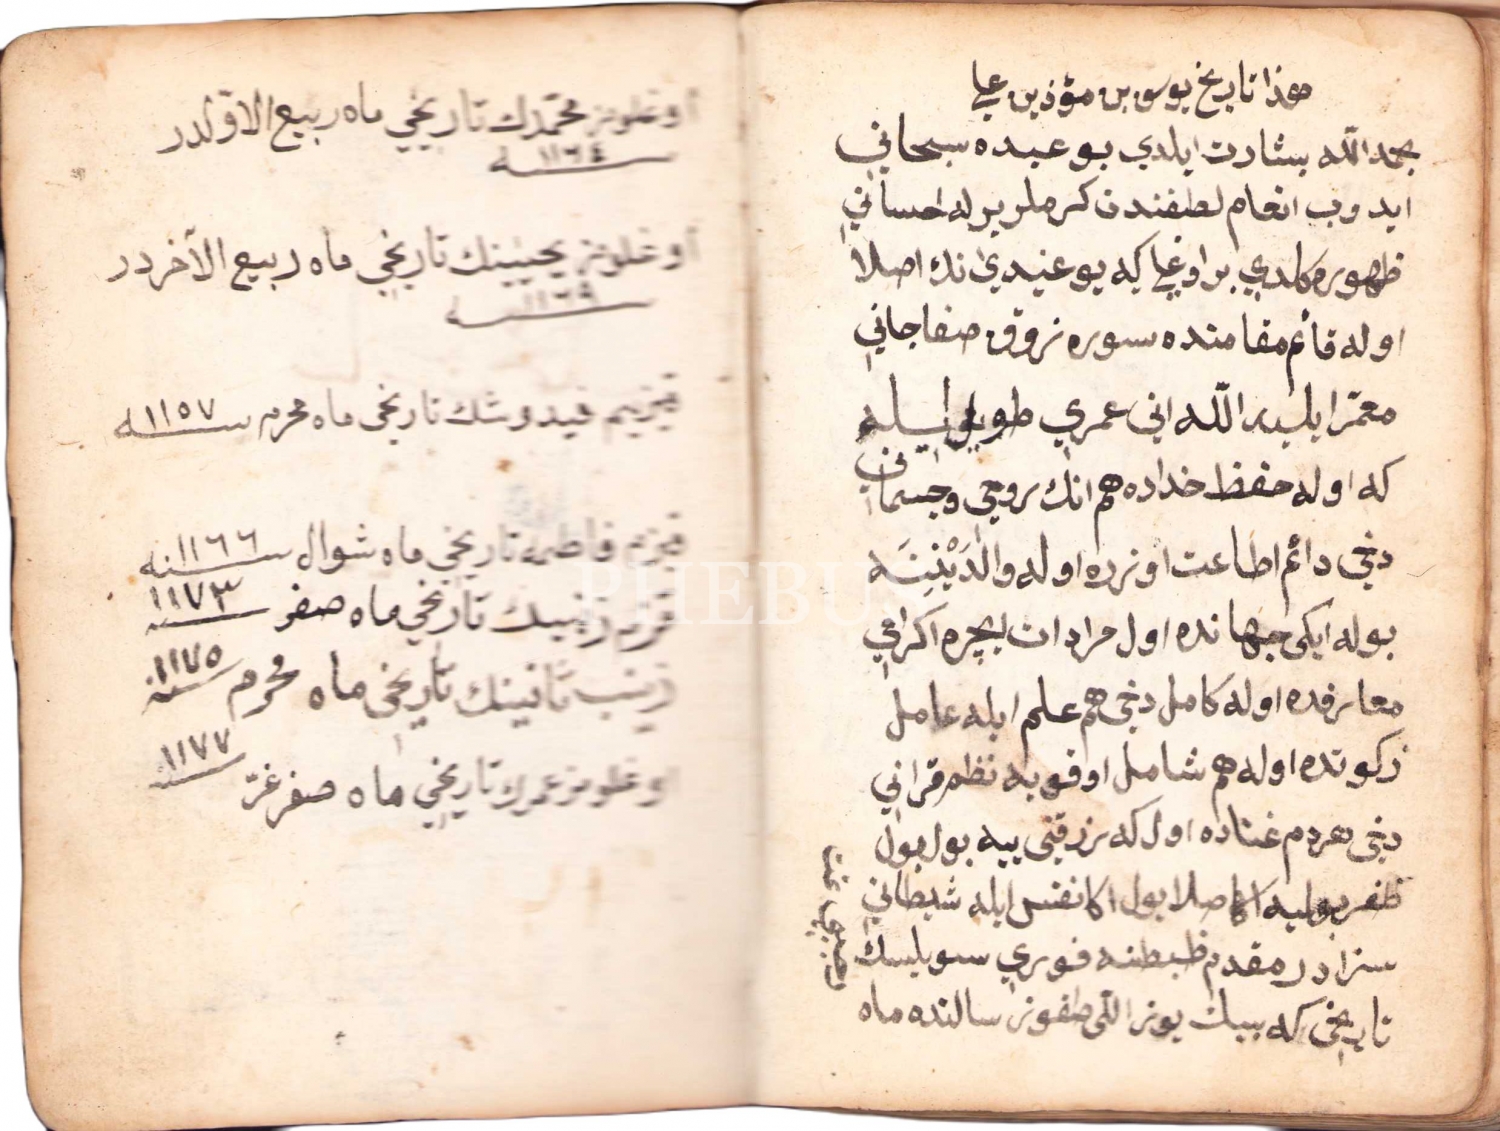 هذا تاريخ يوسف بن مؤذن علي
بحمد الله بشارت ايلدي بو عبده سبحاني
ايدوب انعام لطفندن كرملر بر له احساني
ظهوره كلدي بر اوغلي كه بو عبدي انك اصلا
اوله قائم مقامنده سوره ذوق صفا جاني
معمر ايليه الله اني عمري طويل ايله
كه اوله حفظ خداده هم انك روحي وجسماني
دخي دائم اطاعت اوزره اوله والدينه
بوله ايكي جهانده اول مرادات ايچره اكرامي
معارفده اوله كامل دخي هم علم ايله عامل
ذكوتده اوله هم شامل اوقويه نظم قراني
دخي هردم غناده اول كه رزقني ييه بول بول
ظفر بولميه اصلا يول اكا نفس ايله شيطاني
سزادر مقدم ضبطنه فوري سويلسك
تاريخي كه بيك يوز اللي طقوز سالنده ماه
اوغلومز محمدك تاريخي ماه ربيع الاولدر
سنه ١١٦٤
اوغلومز يحيينك تاريخي ماه ربيع الآخردر
سنه ١١٦٩
قيزيم فيدوشك تاريخي ماه محرم سنه ١١٥٧
قيزم فاطمه تاريخي ماه شوال سنه ١١٦٦
قزم زينبك تاريخي ماه صفر سنه ١١٧٣
زينب ثانينك تاريخي ماه محرم سنه ١١٧٥
اوغلومز عمرك تاريخي ماه صفر غر ١١٧٧
PHEBUS